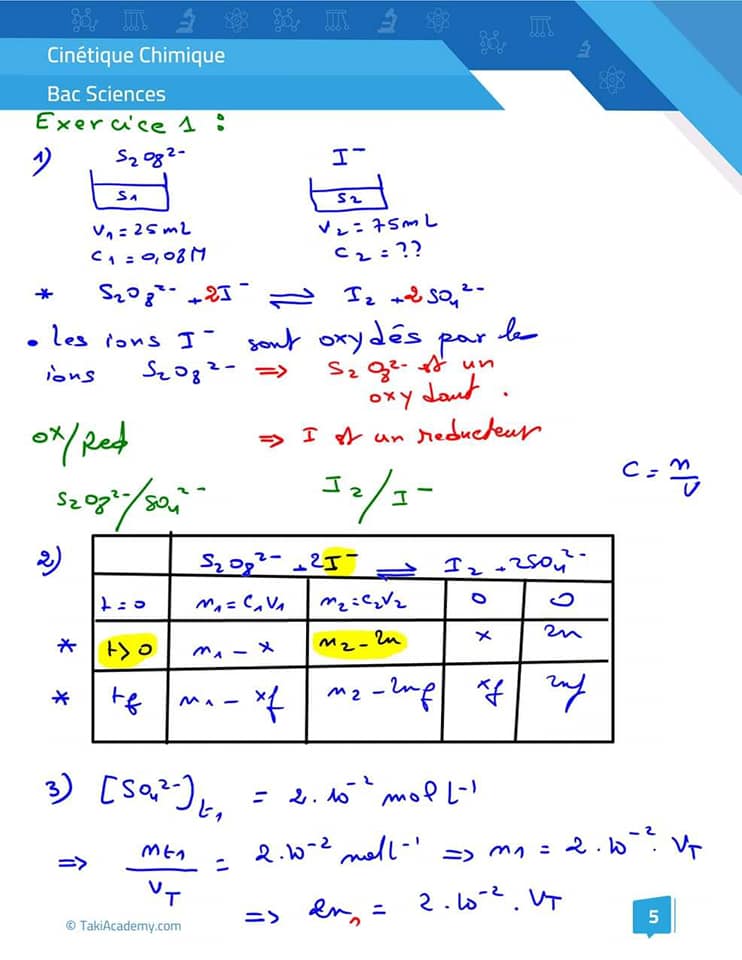 Cinétique Chimique
Bac Sciences
Exercice 1 :
1) S₂O₈²⁻ I⁻
S1 S2
V₁ = 25mL V₂ = 75mL
C₁ = 0,08M C₂ = ??
* S₂O₈²⁻ + 2I⁻ ⇌ I₂ + 2SO₄²⁻
• les ions I⁻ sont oxydés par le
ions S₂O₈²⁻ => S₂O₈²⁻ est un
oxydant .
ox/Red => I est un reducteur
S₂O₈²⁻/SO₄²⁻ I₂/I⁻ C = n/V
2) S₂O₈²⁻ + 2I⁻ ⇌ I₂ + 2SO₄²⁻
t = 0 n₁ = C₁V₁ n₂ = C₂V₂ 0 0
* t > 0 n₁ - x n₂ - 2x x 2x
* tf n₁ - xf n₂ - 2xf xf 2xf
3) [SO₄²⁻]t₁ = 2.10⁻² mol L⁻¹
=> nt₁/VT = 2.10⁻² mol L⁻¹ => n₁ = 2.10⁻². VT
=> 2x₁ = 2.10⁻². VT
© TakiAcademy.com
5